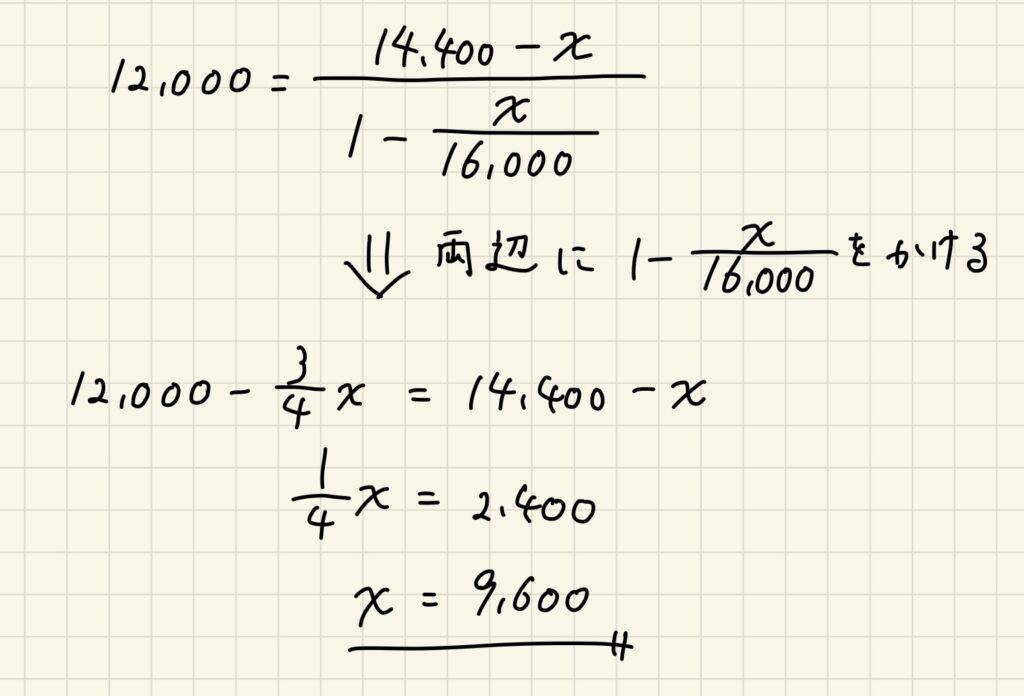 12,000 = (14,400 - x) / (1 - x/16,000)
⇓ 両辺に 1 - x/16,000 をかける
12,000 - 3/4 x = 14,400 - x
1/4 x = 2,400
x = 9,600